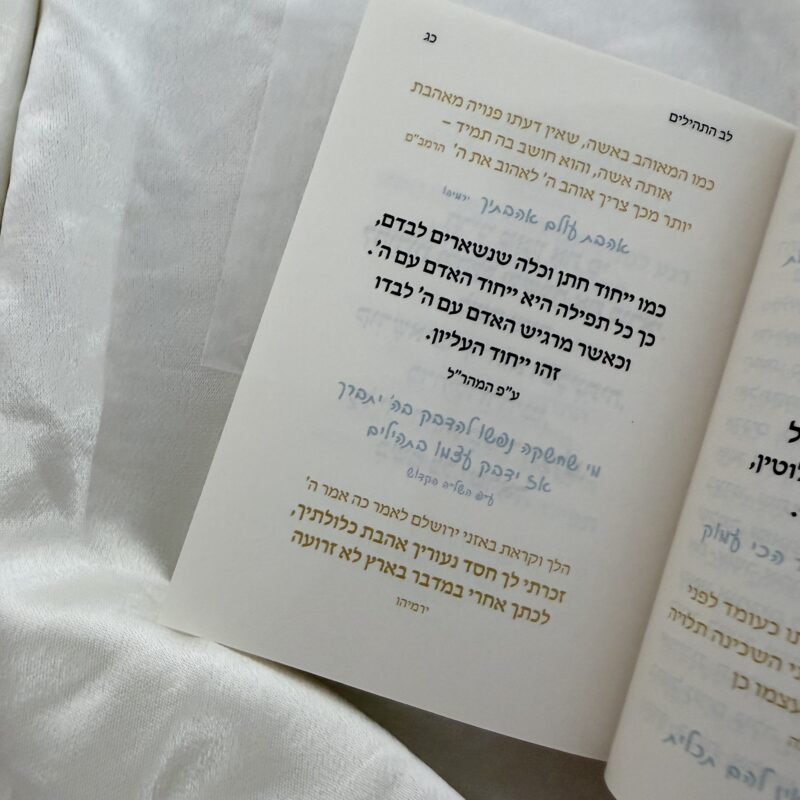 לב התהילים
כג
כמו המאוהב באשה, שאין דעתו פנויה מאהבת
אותה אשה, והוא חושב בה תמיד –
יותר מכך צריך אוהב ה' לאהוב את ה' הרמב"ם
אהבת עולם אהבתיך ירמיהו
כמו ייחוד חתן וכלה שנשארים לבדם,
כך כל תפילה היא ייחוד האדם עם ה'.
וכאשר מרגיש האדם עם ה' לבדו
זהו ייחוד העליון.
ע"פ המהר"ל
מי שחשקה נפשו להדבק בה' יתברך
אז ידבק עצמו בתהילים
ע"פ השל"ה הקדוש
הלך וקראת באזני ירושלם לאמר כה אמר ה'
זכרתי לך חסד נעוריך אהבת כלולתיך,
לכתך אחרי במדבר בארץ לא זרועה
ירמיהו
הכי עמוק
כעומד לפני
השכינה תלויה
עצמו כן
להם תכלית